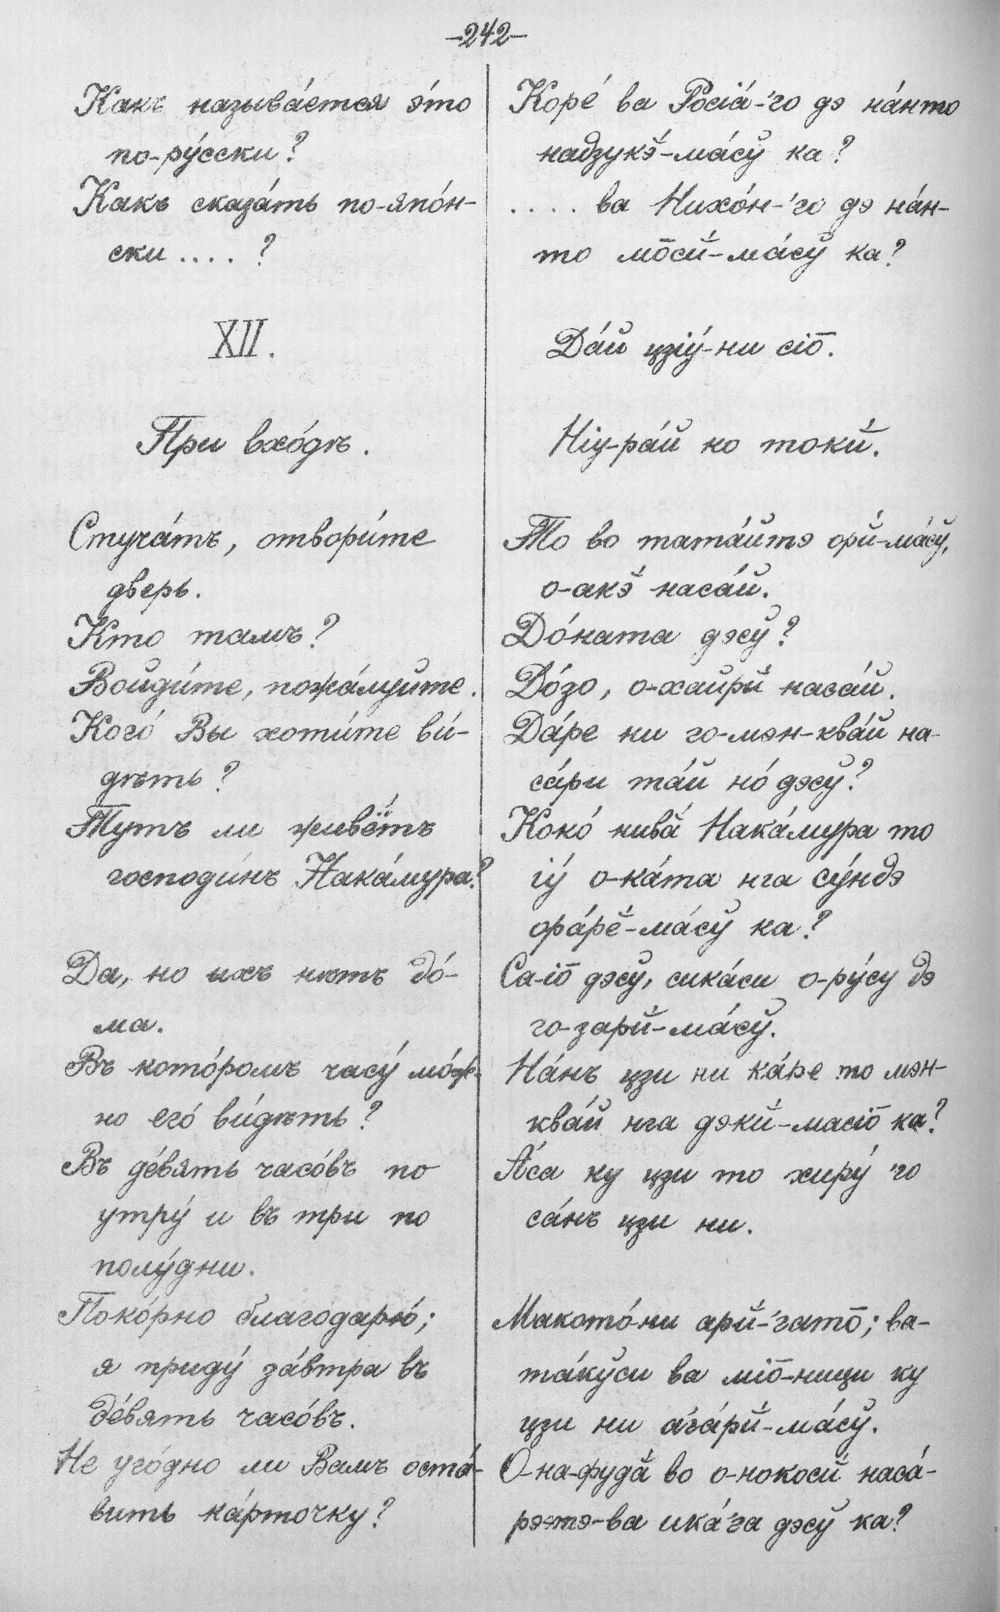 —242—
Какъ назывáется э́то
по-рýсски?
Какъ сказáть по-япóн-
ски....?
XII.
При вхóдѣ.
Стучáтъ, отвори́те
дверь.
Кто тамъ?
Войди́те, пожáлуйте.
Когó Вы хоти́те ви́-
дѣть?
Тутъ ли живётъ
господи́нъ Накáмура?
Да, но ихъ нѣтъ дó-
ма.
Въ котóромъ часý мóж-
но егó ви́дѣть?
Въ дéвять часóвъ по
утрý и въ три по
полýдни.
Покóрно благодарю́;
я придý зáвтра въ
дéвять часóвъ.
Не угóдно ли Вамъ остá-
вить кáрточку?
Корé ва Росіá-'го дэ нáнто
надзукэ̆́-мáсў ка?
.... ва Нихóн-'го дэ нáн-
то мо̄сй-мáсў ка?
Дáй цзіý-ни сіо̄.
Ніу-рáй но токи́.
То во татáйтэ орй-мáсў,
о-акэ̆́ насáй.
Дóната дэсў?
Дóзо, о-хайрй насáй.
Дáре ни го-мэн-квáй на-
сáри тáй нó дэсў?
Кокó нивă Накáмура то
іý о-кáта нга сýндэ
орáрĕ-мáсў ка?
Са-іо̄ дэсў, сикáси о-рýсу дэ
го-зарй-мáсў.
Нáнъ цзи ни кáре то мэн-
квáй нга дэкй-масіо̄ ка?
Áса ку цзи то хирý 'го
сáнъ цзи ни.
Макотó-ни арй-'гато̄; ва-
тáкўси ва міо̄-ници ку
цзи ни áгáрй-мáсў.
О-на-фудă во о-нокосй насá-
рэтэ-ва икá'га дэсў ка?